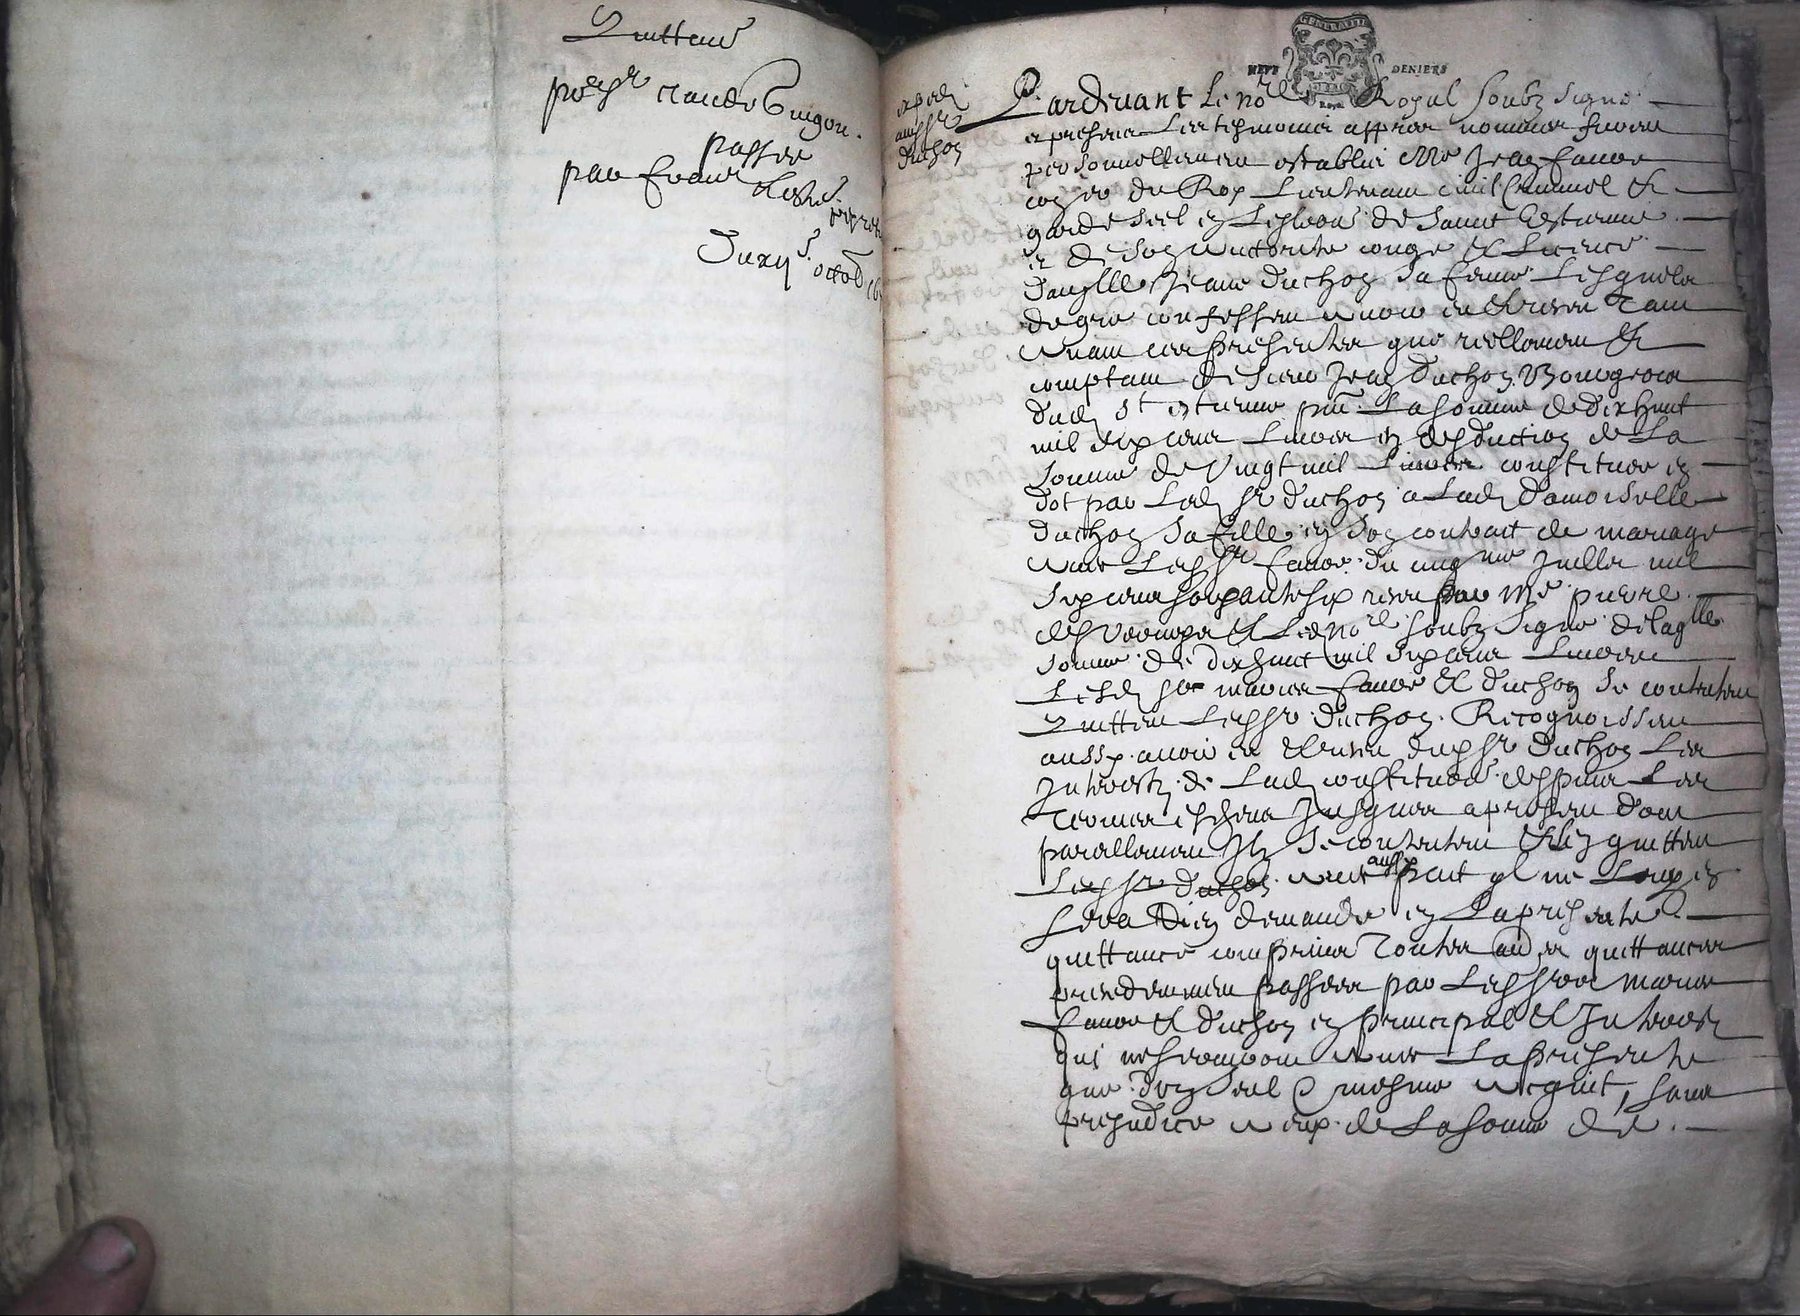 Quittance
po&r sr claude Guigon.
passée
par
octob 16
expedié
audsr
duchon
GENERALITE
NEUF DENIERS
Pardevant le nore Royal soubz signé
et presens les tesmoins appres nommes furent
personnellement establis Mre Jean faure
coner du Roy Lieutenant civil Criminel et
garde seel en de Saint Estienne
et de son authorité congé et Licence
damlle Jeanne duchon sa femme Lesquels
de gré confessent avoir eu et receu tant
avant ces presentes que reellement et
comptant de sieur Jean duchon Bourgeois
dud st estienne pnt La somme de dix huit
mil six cens Livres en desduction de La
somme de Vingt mil Livres constituée en
dot par Led sr duchon a Lad damoiselle
duchon sa fille en son contrait de mariage
avec Ledsr faure du cinqme Juillet mil
six cens soixante six receu par Me pierre
desverneys et Led nore soubz signé de laqlle
somme de dix huit mil six cens Livres
Lesd srs mariés faure et duchon se contentent
quittent Ledsr duchon. Recognoissent
aussy avoir eu et receu dudsr duchon Les
Interestz de Lad constitution despuis Les
termes escheus Jusques a present dont
pareillement Ilz se contentent et len quittent
Ledsr duchon avec aussy pact qu'il ne Luy en
sera rien demandé en La presente
quittance comprises toutes au es quittances
precedemment passées par Lesdsrs mariés
faure et duchon en principal et Interestz
qui ne serviront avec La presente
que d'un seul et mesme acquit, sans
prejudice a eux de La somme de